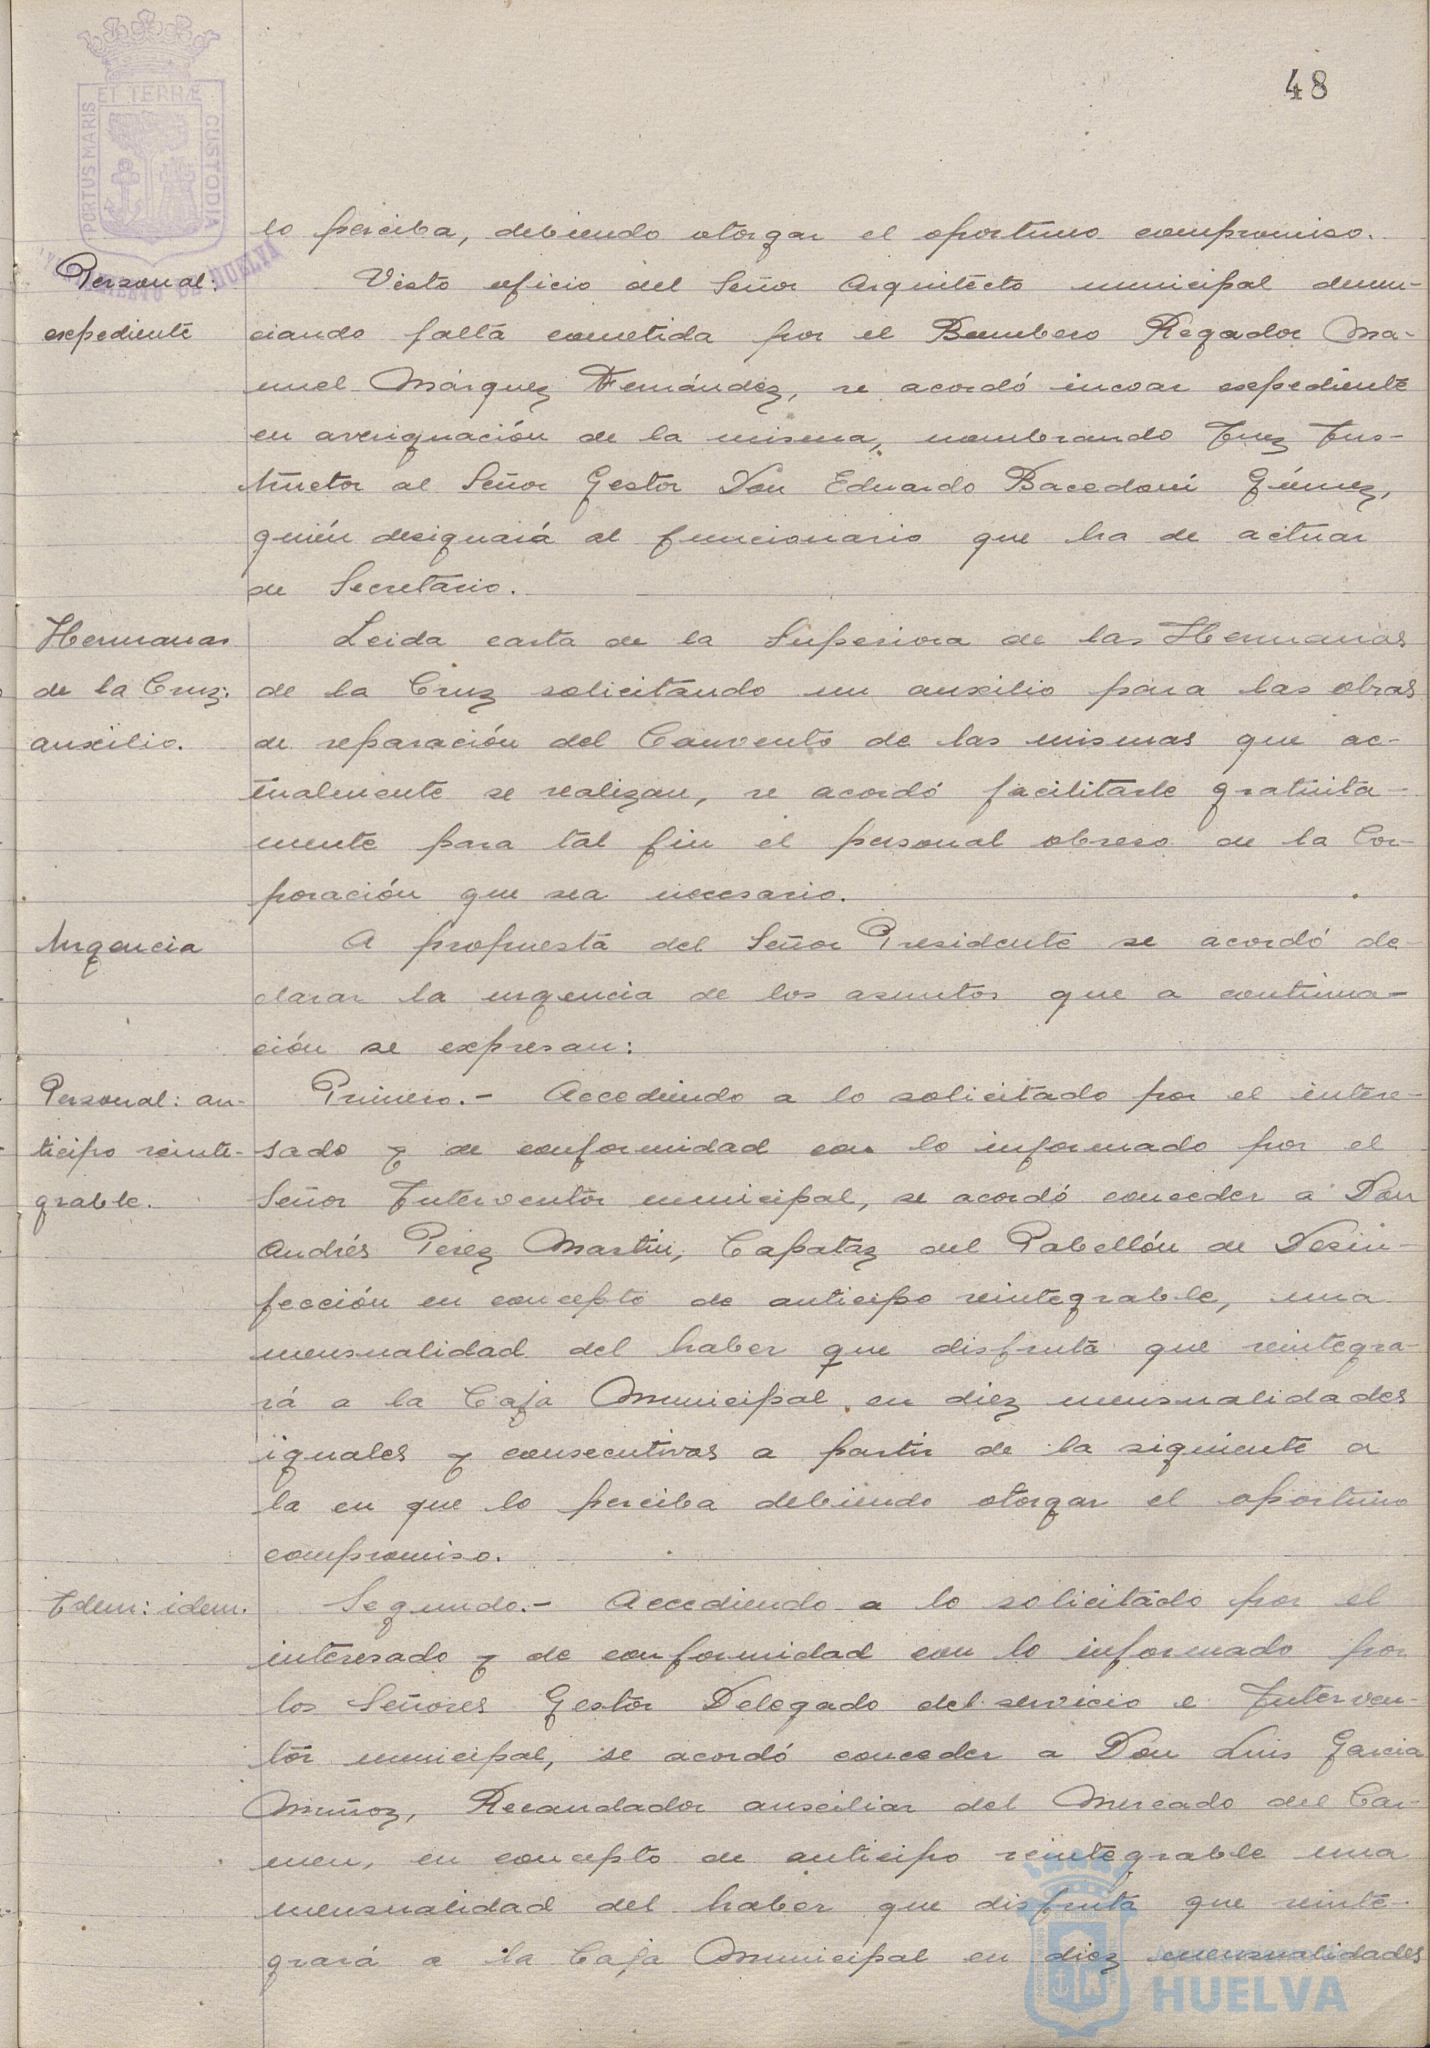 48
ET TERRÆ
PORTUS MARIS
CUSTODIA
AYUNTAMIENTO DE HUELVA
lo perciba, debiendo otorgar el oportuno compromiso.
Personal:
expediente
Visto oficio del Señor Arquitecto municipal denun-
ciando falta cometida por el Bombero Regador Ma-
nuel Márquez Fernández, se acordó incoar expediente
en averiguación de la misma, nombrando Juez Ins-
tructor al Señor Gestor Don Eduardo Bacedoni Gómez,
quién designará al funcionario que ha de actuar
de Secretario.
Hermanas
de la Cruz:
auxilio.
Leida carta de la Superiora de las Hermanas
de la Cruz solicitando un auxilio para las obras
de reparación del Convento de las mismas que ac-
tualmente se realizan, se acordó facilitarle gratuita-
mente para tal fin el personal obrero de la Cor-
poración que sea necesario.
Urgencia
A propuesta del Señor Presidente se acordó de-
clarar la urgencia de los asuntos que a continua-
ción se expresan:
Personal: an-
ticipo reinte-
grable.
Primero.- Accediendo a lo solicitado por el intere-
sado y de conformidad con lo informado por el
Señor Interventor municipal, se acordó conceder a Don
Andrés Perez Martin, Capataz del Pabellón de Desin-
fección en concepto de anticipo reintegrable, una
mensualidad del haber que disfruta que reintegra-
rá a la Caja Municipal en diez mensualidades
iguales y consecutivas a partir de la siguiente a
la en que lo perciba debiendo otorgar el oportuno
compromiso.
Idem: idem.
Segundo.- Accediendo a lo solicitado por el
interesado y de conformidad con lo informado por
los Señores Gestor Delegado del servicio e Interven-
tor municipal, se acordó conceder a Don Luis Garcia
Muñoz, Recaudador auxiliar del Mercado del Car-
men, en concepto de anticipo reintegrable una
mensualidad del haber que disfruta que reinte-
grará a la Caja Municipal en diez mensualidades
HUELVA